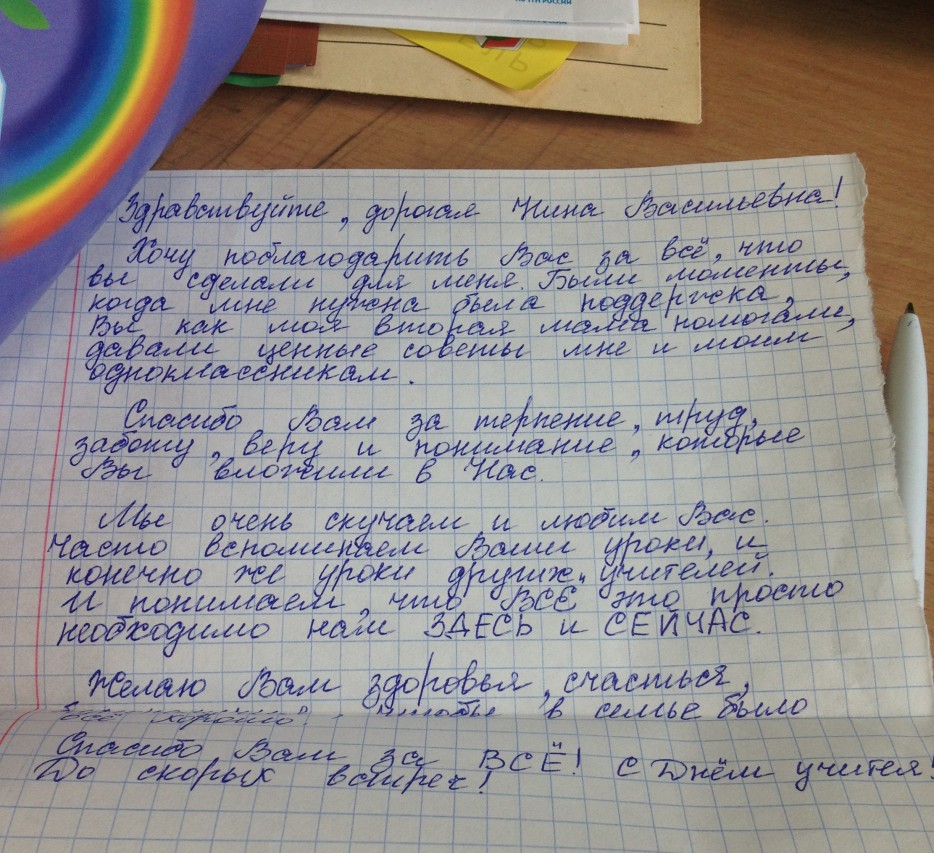 ПОЧТА РОССИИ
ЕЛЬ
Здравствуйте, дорогая Нина Васильевна!
Хочу поблагодарить Вас за всё, что
вы сделали для меня. Были моменты,
когда мне нужна была поддержка,
Вы как моя вторая мама помогали,
давали ценные советы мне и моим
одноклассникам.
Спасибо Вам за терпение, труд,
заботу, веру и понимание, которые
Вы вложили в Нас.
Мы очень скучаем и любим Вас.
Часто вспоминаем Ваши уроки, и
конечно же уроки других учителей.
И понимаем, что ВСЁ это просто
необходимо нам ЗДЕСЬ и СЕЙЧАС.
Желаю Вам здоровья, счастья,
чтобы в семье было
всё хорошо.
Спасибо Вам за ВСЁ! С Днём учителя!
До скорых встреч!